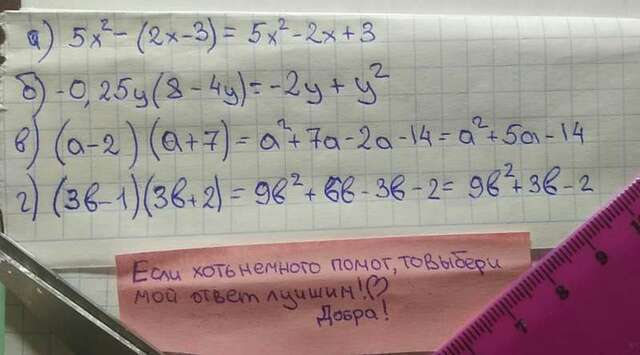 а) 5x² - (2x-3) = 5x² - 2x + 3
б) -0,25y(8-4y) = -2y + y²
в) (a-2) (a+7) = a² + 7a - 2a - 14 = a² + 5a - 14
г) (3b-1)(3b+2) = 9b² + 6b - 3b - 2 = 9b² + 3b - 2
Если хоть немного помог, то выбери
мой ответ луишим!♡
Добра!
7 8 9